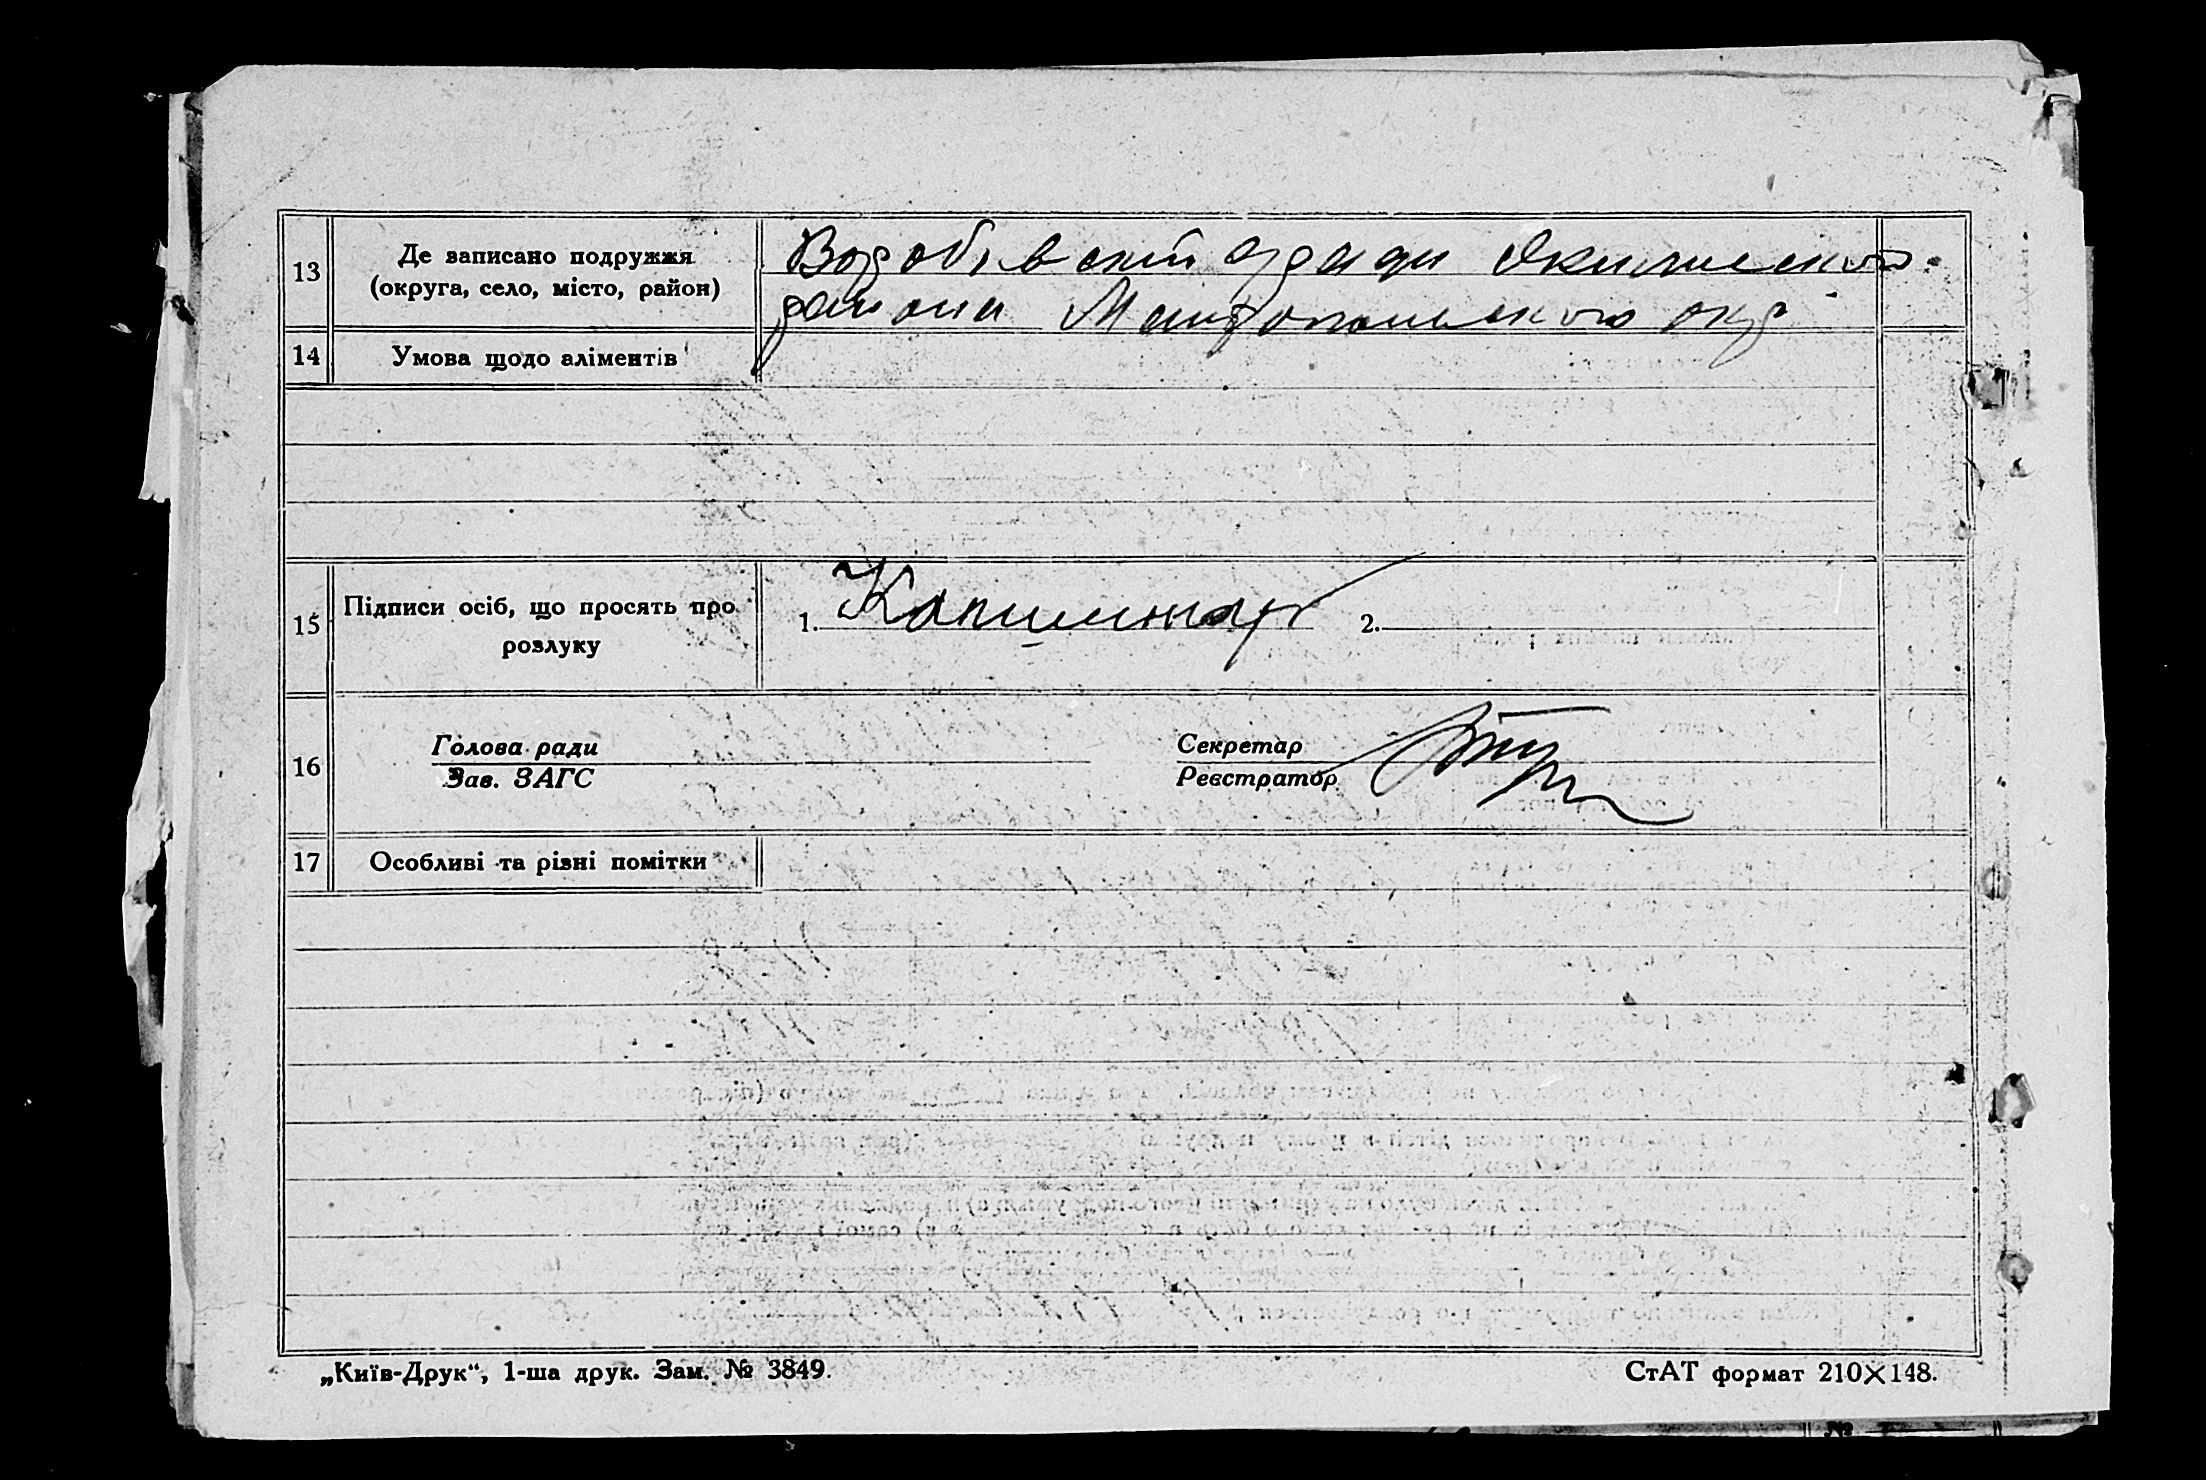 13
Де записано подружжя
(округа, село, місто, район)
района Мелитопольского окр
14 Умова щодо аліментів
15
Підписи осіб, що просять про
розлуку
1.
2.
16
Голова ради
Зав. ЗАГС
Секретар
Реєстратор
17 Особливі та різні помітки
„Київ-Друк“, 1-ша друк. Зам. № 3849.
СтАТ формат 210×148.
№